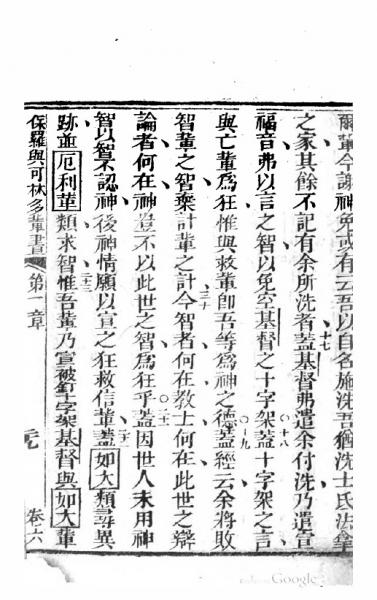 爾輩今謝神免或有云吾以自名施洗吾猶洗士氐法拿
之家其餘不記有余所洗者蓋基督弗遣余付洗乃遣宣
十七
福音弗以言之智以免空基督之十字架蓋十字架之言
十八
與亡輩爲狂惟與救輩卽吾等爲神之德蓋經云余將敗
十九
智輩之智棄計輩之計今智者何在教士何在此世之辯
二十
論者何在神豈不以此世之智爲狂乎蓋因世人未用神
二十一
智以智不認神後神情願以宣之狂救信輩蓋如大類尋異
二十二
跡並厄利輩類求智惟吾輩乃宣被釘十字架基督與如大輩
二十三
保羅與可林多輩書 第一章 卷六
Google